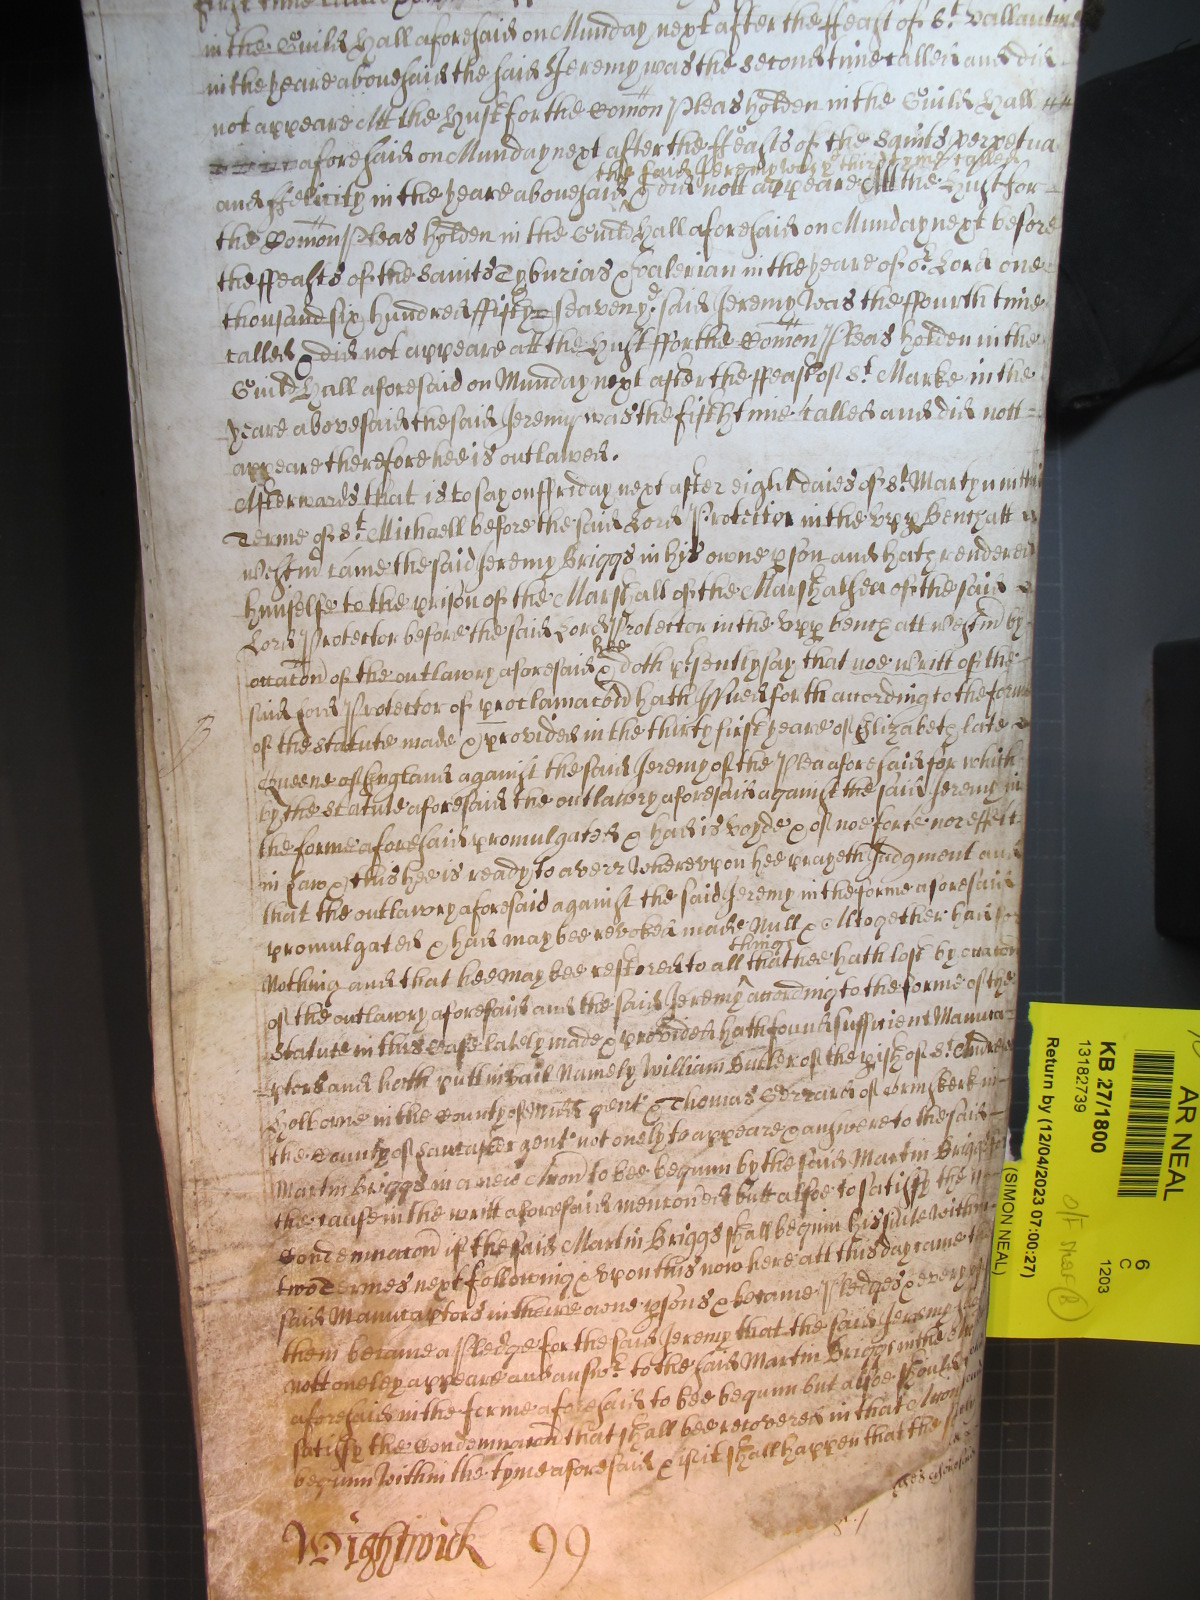 in the Guild Hall aforesaid on Munday next after the ffeast of St. Vallantine
in the yeare abovesaid the said Jeremy was the second time called and did
not appeare Att the Hust for the Com̄on Pleas holden in the Guild Hall
aforesaid on Munday next after the ffeasts of the Saints Perpetua
the said Jeremy was ye third tyme called
and ffelicity in the yeare abovesaid & did nott appeare Att the Hust for
the Com̄on Pleas holden in the Guild Hall aforesaid on Munday next before
the ffeasts of the Saints Tyburias & Valerian in the yeare of or. Lord one
thousand six hundred ffifty seaven ye said Jeremy was the ffourth time
called & did not appeare att the Hust ffor the Com̄on Pleas holden in the
Guild Hall aforesaid on Munday next after the ffeast of St. Marke in the
yeare abovesaid the said Jeremy was the fifth time called and did nott
appeare therefore hee is outlawed.
Afterwards that is to say on ffriday next after eight daies of St. Martyn in
Terme of St. Michaell before the said Lord Protector in the upp Bench att
Westm̄ came the said Jeremy Briggs in his owne pson and hath rendered
himselfe to the prison of the Marshall of the Marshalsea of the said
Lord Protector before the said Lord Protector in the upp bench att Westm̄ by
hee
occac̄on of the outlawry aforesaid & doth psently say that noe writt of the
said Lord Protector of proclamac̄on hath Issued forth according to the forme
of the statute made & provided in the thirty first yeare of Elizabeth late
Queene of England against the said Jeremy of the Plea aforesaid for which
by the statute aforesaid the outlawry aforesaid against the said Jeremy in
the forme aforesaid promulgated & had is voyde & of noe force nor effect
in Law & this hee is ready to averr Whereupon hee prayeth Judgment and
that the outlawry aforesaid against the said Jeremy in the forme aforesaid
promulgated & had may bee revoked made Null & Alltogether had for
things
Nothing and that hee may bee restored to all that hee hath lost by occac̄on
of the outlawry aforesaid and the said Jeremy according to the forme of the
statute in this Case lately made & provided hath found sufficient Manuca-
ptors and hath putt in bail Namely William Butler of the pish of St. Andrew
Holborne in the County of Midd gent & Thomas Gerrard of Ormskerk in
the County of Lancaster gent not onely to appeare & answere to the said
Martin Briggs in a new Acc̄on to bee begunn by the said Martin Briggs for
the cause in the writt aforesaid menc̄oned butt alsoe to satisfy the
Condemnac̄on if the said Martin Briggs shall beginn his suite within
two Termes next following & upon this now here att this day came the
said Manucaptors in theire owne psons & became Pledges & every of
them became a Pledge for the said Jeremy that the said Jeremy
nott oneley appeare and answr. to the said Martin Briggs in the
aforesaid in the forme aforesaid to bee begunn but alsoe should
satisfy the Condemnac̄on that shall bee recovered in that Acc̄on
begunn within the tyme aforesaid & if it shall happen that the said
Wightwick 99
AR NEAL
6
C
1203
KB 27/1800
13182739
Return by (12/04/2023 07:00:27)
(SIMON NEAL)